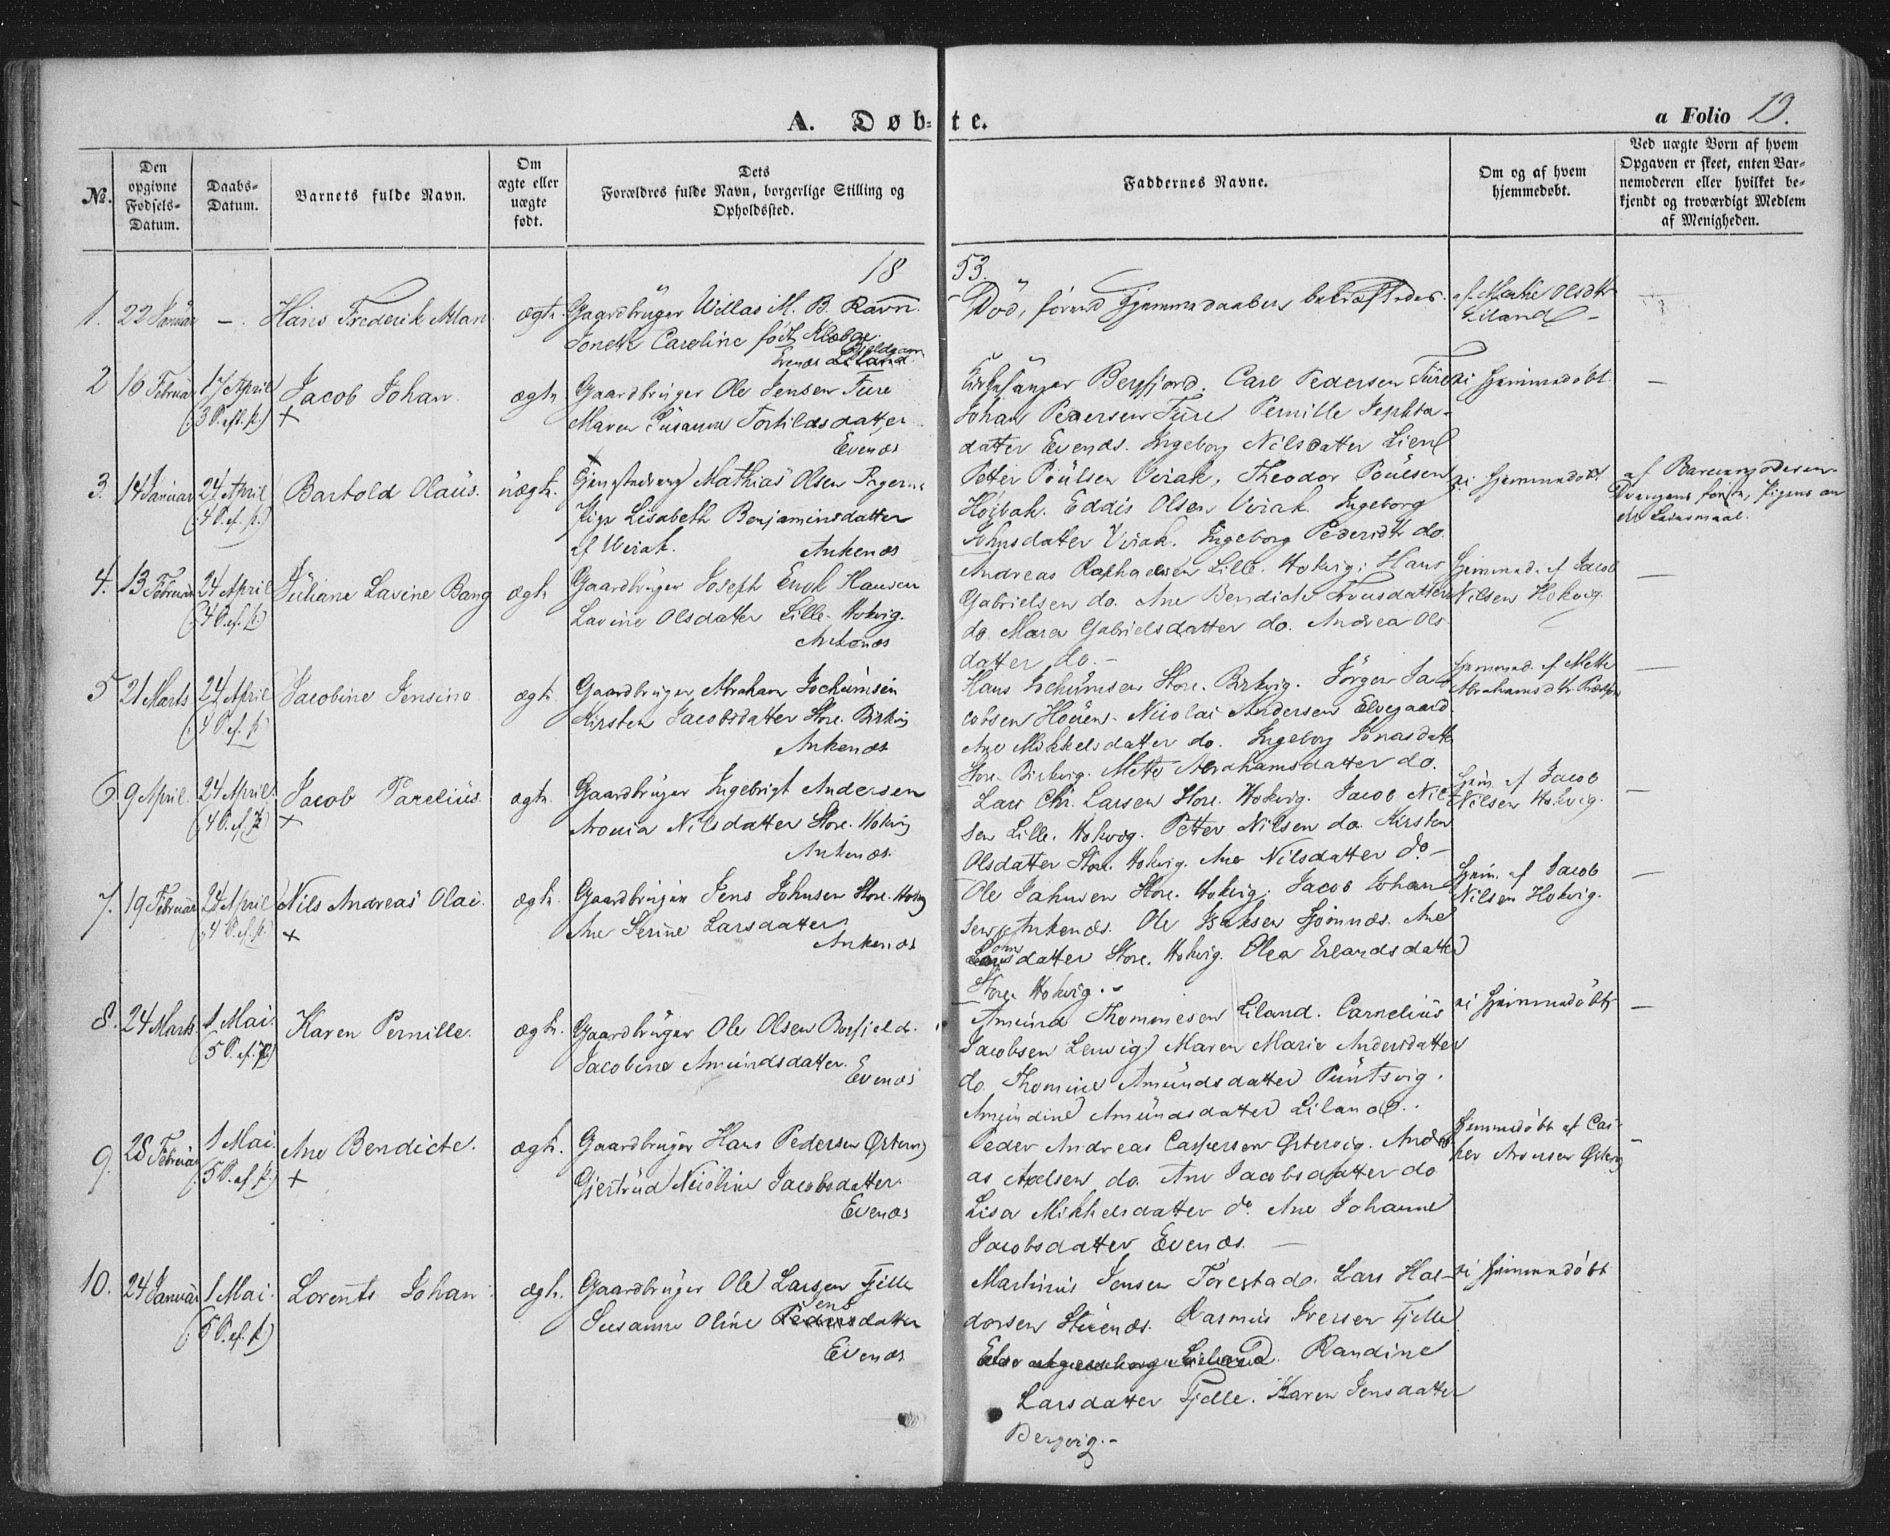 A. Døbte.
a Folio 19.
№.
Den opgivne Fødsels-Datum.
Daabs-Datum.
Barnets fulde Navn.
Om ægte eller uægte født.
Dets Forældres fulde Navn, borgerlige Stilling og Opholdssted.
Faddernes Navne.
Om og af hvem hjemmedøbt.
Ved uægte Børn af hvem Opgaven er skeet, enten Barnemoderen eller hvilket bekjendt og troværdigt Medlem af Menigheden.
1853.
1. 22 Januar —. Hans Frederik Allan ægte. Gaardbruger Willas M. B. Ravn.
Joneth Caroline født Klæboe.
Evenæs
Død, førend Hjemmedaaben bekræftedes.
af Olsdtr
Liland —
2 16 Februar 17 April Jacob Johan ægte Gaardbruger Ole Jensen Fure
(3 S. eft. p.) +
Maren Susanna Torkildsdatter
Evenæs
Kirkesanger Bergfjord. Carl Pedersen Fure
Johan Pedersen Fure Pernille Jephta-
datter Evenæs. Ingeborg Nilsdatter Lien
ei hjemmedøbt. —
3. 14 Januar 24 April Bartold Olaus. uægte. Mathias Olsen
(4 S. ef. p.)
Pige Lisabeth Benjaminsdatter
af Virak. Ankenæs
Petter Poulsen Virak, Theodor Poulsen
Høibak. Eddis Olsen Virak Ingeborg
Johnsdatter Virak. Ingeborg Pedersdtr do.
ei hjemmedøbt
af Barnemoderen
Drengens første, Pigens an
det Leiermaal.
4. 13 Februar 24 April Juliane Lavine Bang ægte Gaardbruger Joseph Enok Hansen
(4 S. ef. p.)
Lavine Olsdatter Lille-Hokvig.
Ankenæs
Andreas Raphaelsen Lille-Hokvig. Hans
Gabrielsen do. Ane Bendicte datter
do. Maren Gabrielsdatter do. Andrea Ols
datter do. —
hjemmed. af Jacob
Nilsen Hokvig. —
5 21 Marts 24 April Jacobine Jensine ægte. Gaardbruger Abraham Jochumsen
(4 S. ef. p.)
Kirsten Jacobsdatter Store-Birkvig
Ankenæs
Hans Jochumsen Store-Birkvig. Jørgen Ja-
cobsen Nicolai Andersen Elvegaard
Ane Mikkelsdatter do. Ingeborg Jonasdatt
Store-Birkvig. Mette Abrahamsdatter do.
hjemmed. af Mette
Abrahamsdtr —
6 9 April. 24 April Jacob Parelius ægte. Gaardbruger Ingebrigt Andersen
(4 S. ef. p.) +
Aronia Nilsdatter Store-Hokvig
Ankenæs.
Lars Chr. Larsen Store-Hokvig. Jacob Nil-
sen Lille-Hokvig. Petter Nilsen do. Kirsten
Olsdatter Store-Hokvig. Ane Nilsdatter do —
hjem. af Jacob
Nilsen Hokvig. —
7. 19 Februar 24 April Nils Andreas Olai. ægte. Gaardbruger Jens Johnsen Store-Hokvig
(4 S. ef. p.) +
Ane Serine Larsdatter
Ankenæs
Ole Johnsen Store-Hokvig. Jacob Johan
sen Ankenæs. Ole Isaksen Ane
datter Store-Hokvig. Olea Erlandsdatter
Store-Hokvig. —
hjem. af Jacob
Nilsen Hokvig. —
8. 24 Marts 1 Mai. Karen Pernille. ægte. Gaardbruger Ole Olsen Bøfjeld.
(5 S. ef. p.)
Jacobine Amundsdatter.
Evenæs
Amund Thommesen Liland. Carnelius
Jacobsen Lenvig. Maren Marie Andersdatter
do. Thomine Amundsdatter
Amundine Amundsdatter Liland.
ei hjemmedøbt —
9. 28 Februar 1 Mai Ane Bendicte. ægte. Gaardbruger Hans Pedersen Østervig
(5 S. ef. p.) +
Gjertrud Nicoline Jacobsdatter.
Evenæs
Peder Andreas Caspersen Østervig. Andre-
as Axelsen do. Ane Jacobsdatter do
Lisa Mikkelsdatter do. Ane Johanne
Jacobsdatter Evenæs. —
hjemmedøbt af Cas-
per Aronsen Østervig —
10. 24 Januar 1 Mai. Lorents Johan. ægte. Gaardbruger Ole Larsen Fjelle
(5 S. ef. p.)
Susanne Oline Jensdatter
Evenæs
Martinus Jensen Tørestad. Lars Hal-
dorsen Rasmus Iversen Fjelle.
Randine
Larsdatter Fjelle. Karen Jensdatter
Bergvig. —
ei hjemmedøbt